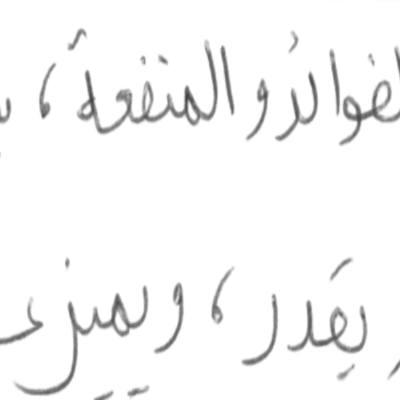 لفوائدُ والمنفعةً ،
يقدر ، ويميز